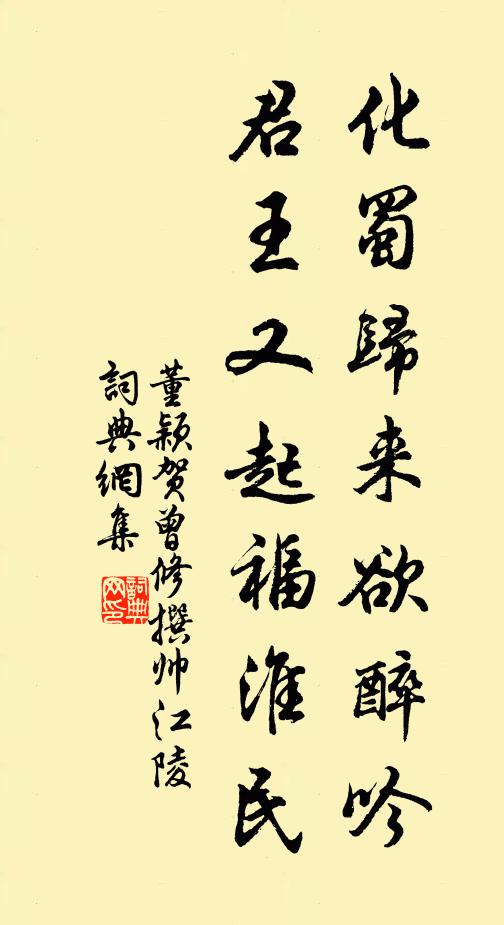 化蜀歸来欲醉吟
君王又起福淮民
董颖贺曾修撰帅江陵
詞典網集
詞典网印